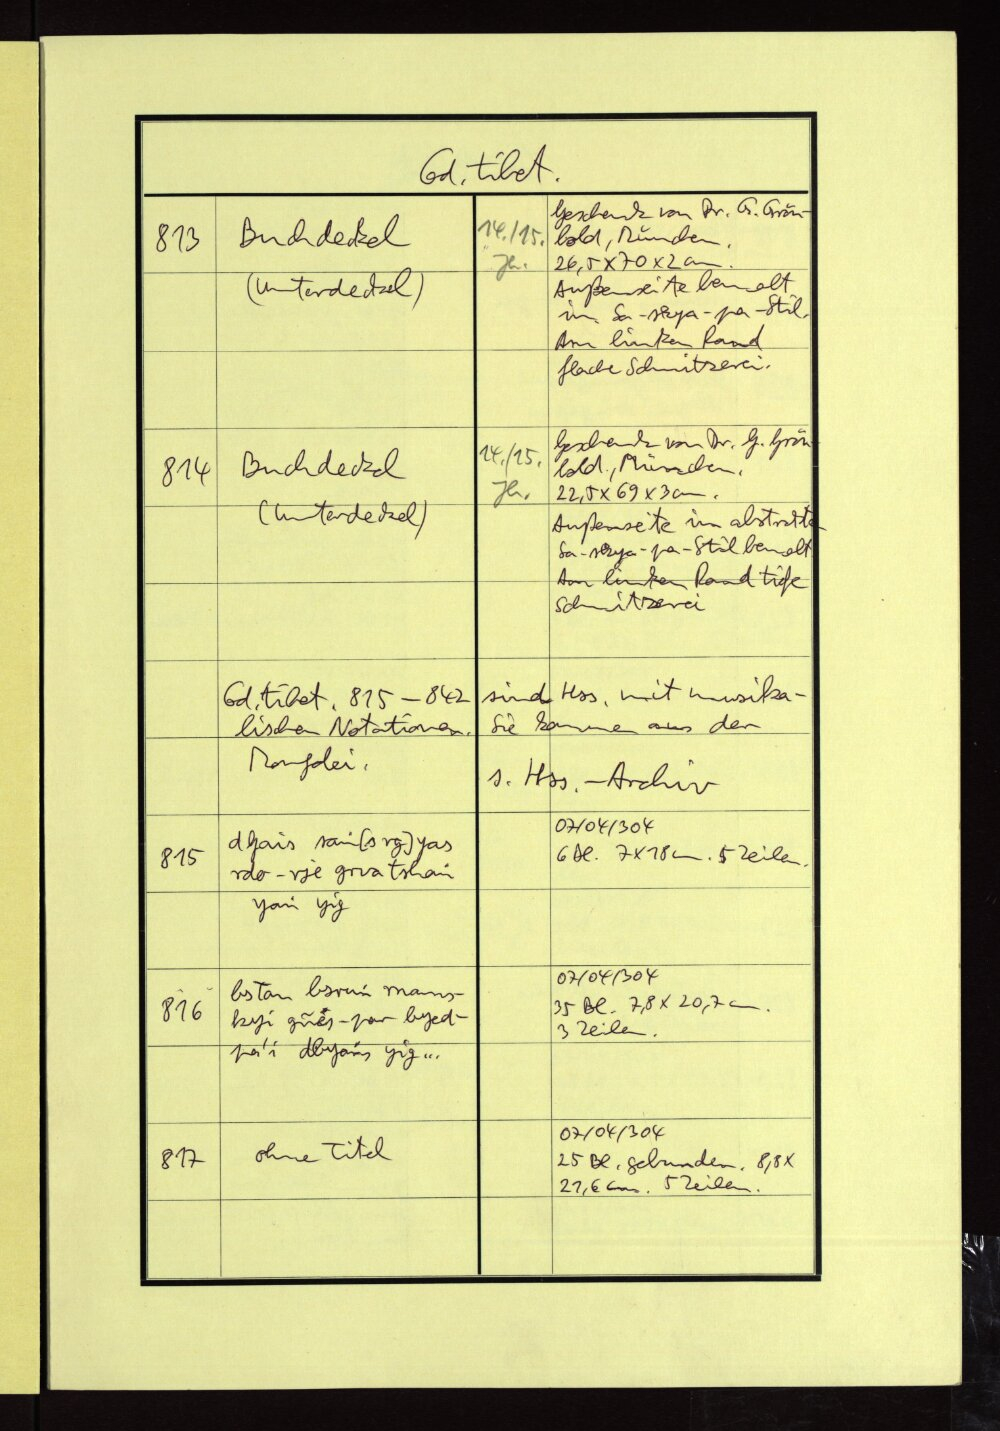 Cod. tibet.
813
Buchdeckel
(Unterdeckel)
14./15.
Jh.
Geschenk von Dr. G. Grön-
bold, München.
26,5 x 70 x 2 cm.
Außenseite bemalt
im Sa-skya-pa-Stil.
Am linken Rand
flache Schnitzerei.
814
Buchdeckel
(Unterdeckel)
14./15.
Jh.
Geschenk von Dr. G. Grön-
bold, München.
22,5 x 69 x 3 cm.
Außenseite im abstrakten
Sa-skya-pa-Stil bemalt
Am linken Rand tiefe
Schnitzerei
Cod. tibet. 815 – 842 sind Hss. mit musika-
lischen Notationen. Sie kommen aus der
Mongolei.
s. Hss.-Archiv
815
saṅ[s rg]yas
rdo-rje
yaṅ yig
07/04/304
6 Bl. 7 x 18 cm. 5 Zeilen.
816
bstan bsruṅ rnams-
kyi gñes-par byed-
pa'i dbyaṅs yig...
07/04/304
35 Bl. 7,8 x 20,7 cm.
3 Zeilen.
817
ohne Titel
07/04/304
25 Bl. gebunden. 8,8 x
21,6 cm. 5 Zeilen.